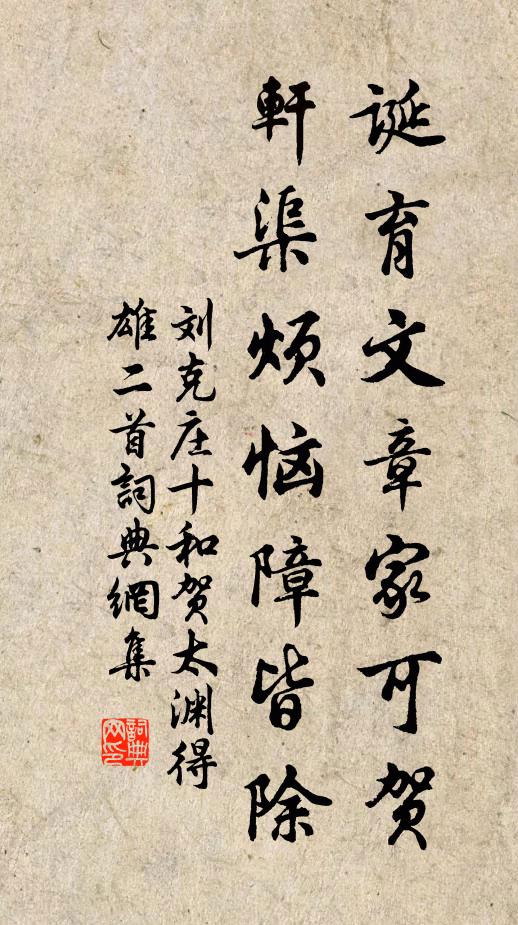 诞育文章家可贺
軒渠烦恼障皆除
刘克庄十和贺太渊得
雄二首詞典網集
詞典
网印